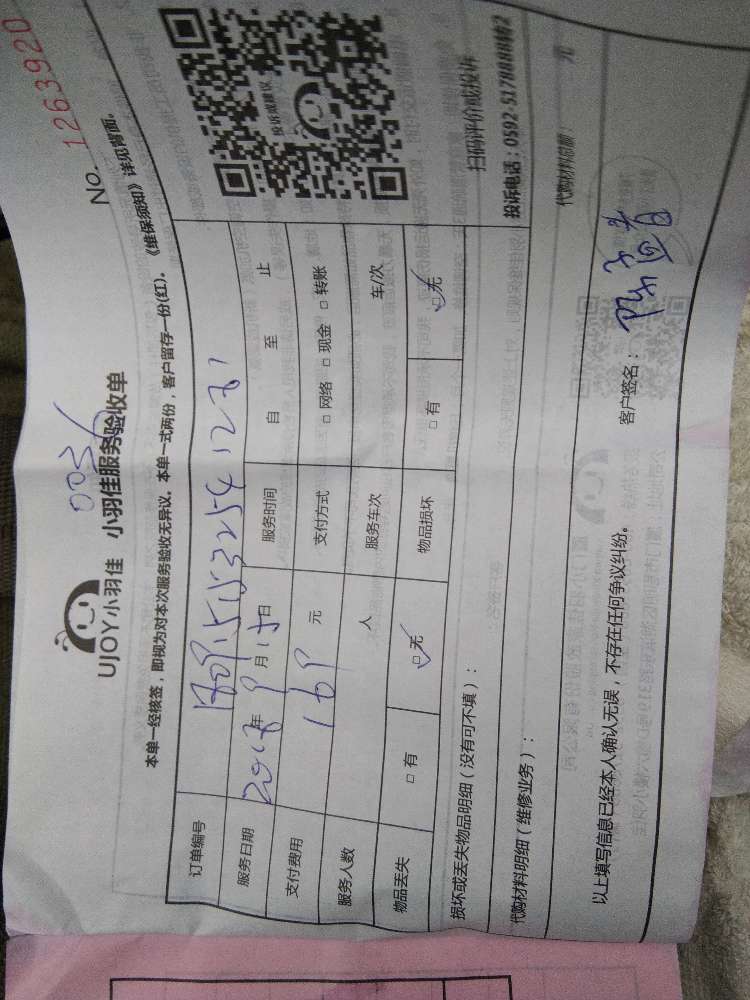 No. 1263920
UJOY小羽佳 小羽佳服务验收单
本单一经核签，即视为对本次服务验收无异议。本单一式两份，客户留存一份(红)。《维保须知》详见背面。
订单编号
服务日期 2017年9月15日 服务时间 自 至 止
支付费用 169元 支付方式 □网络 □现金 □转账
服务人数 人 服务车次 车/次
物品丢失 □有 □无 物品损坏 □有 □无
损坏或丢失物品明细（没有可不填）：
代购材料明细（维修业务）： 代购材料总额： 元
以上填写信息已经本人确认无误，不存在任何争议纠纷。 客户签名：
投诉或建议
扫码评价或投诉
投诉电话：0592-5178888转2